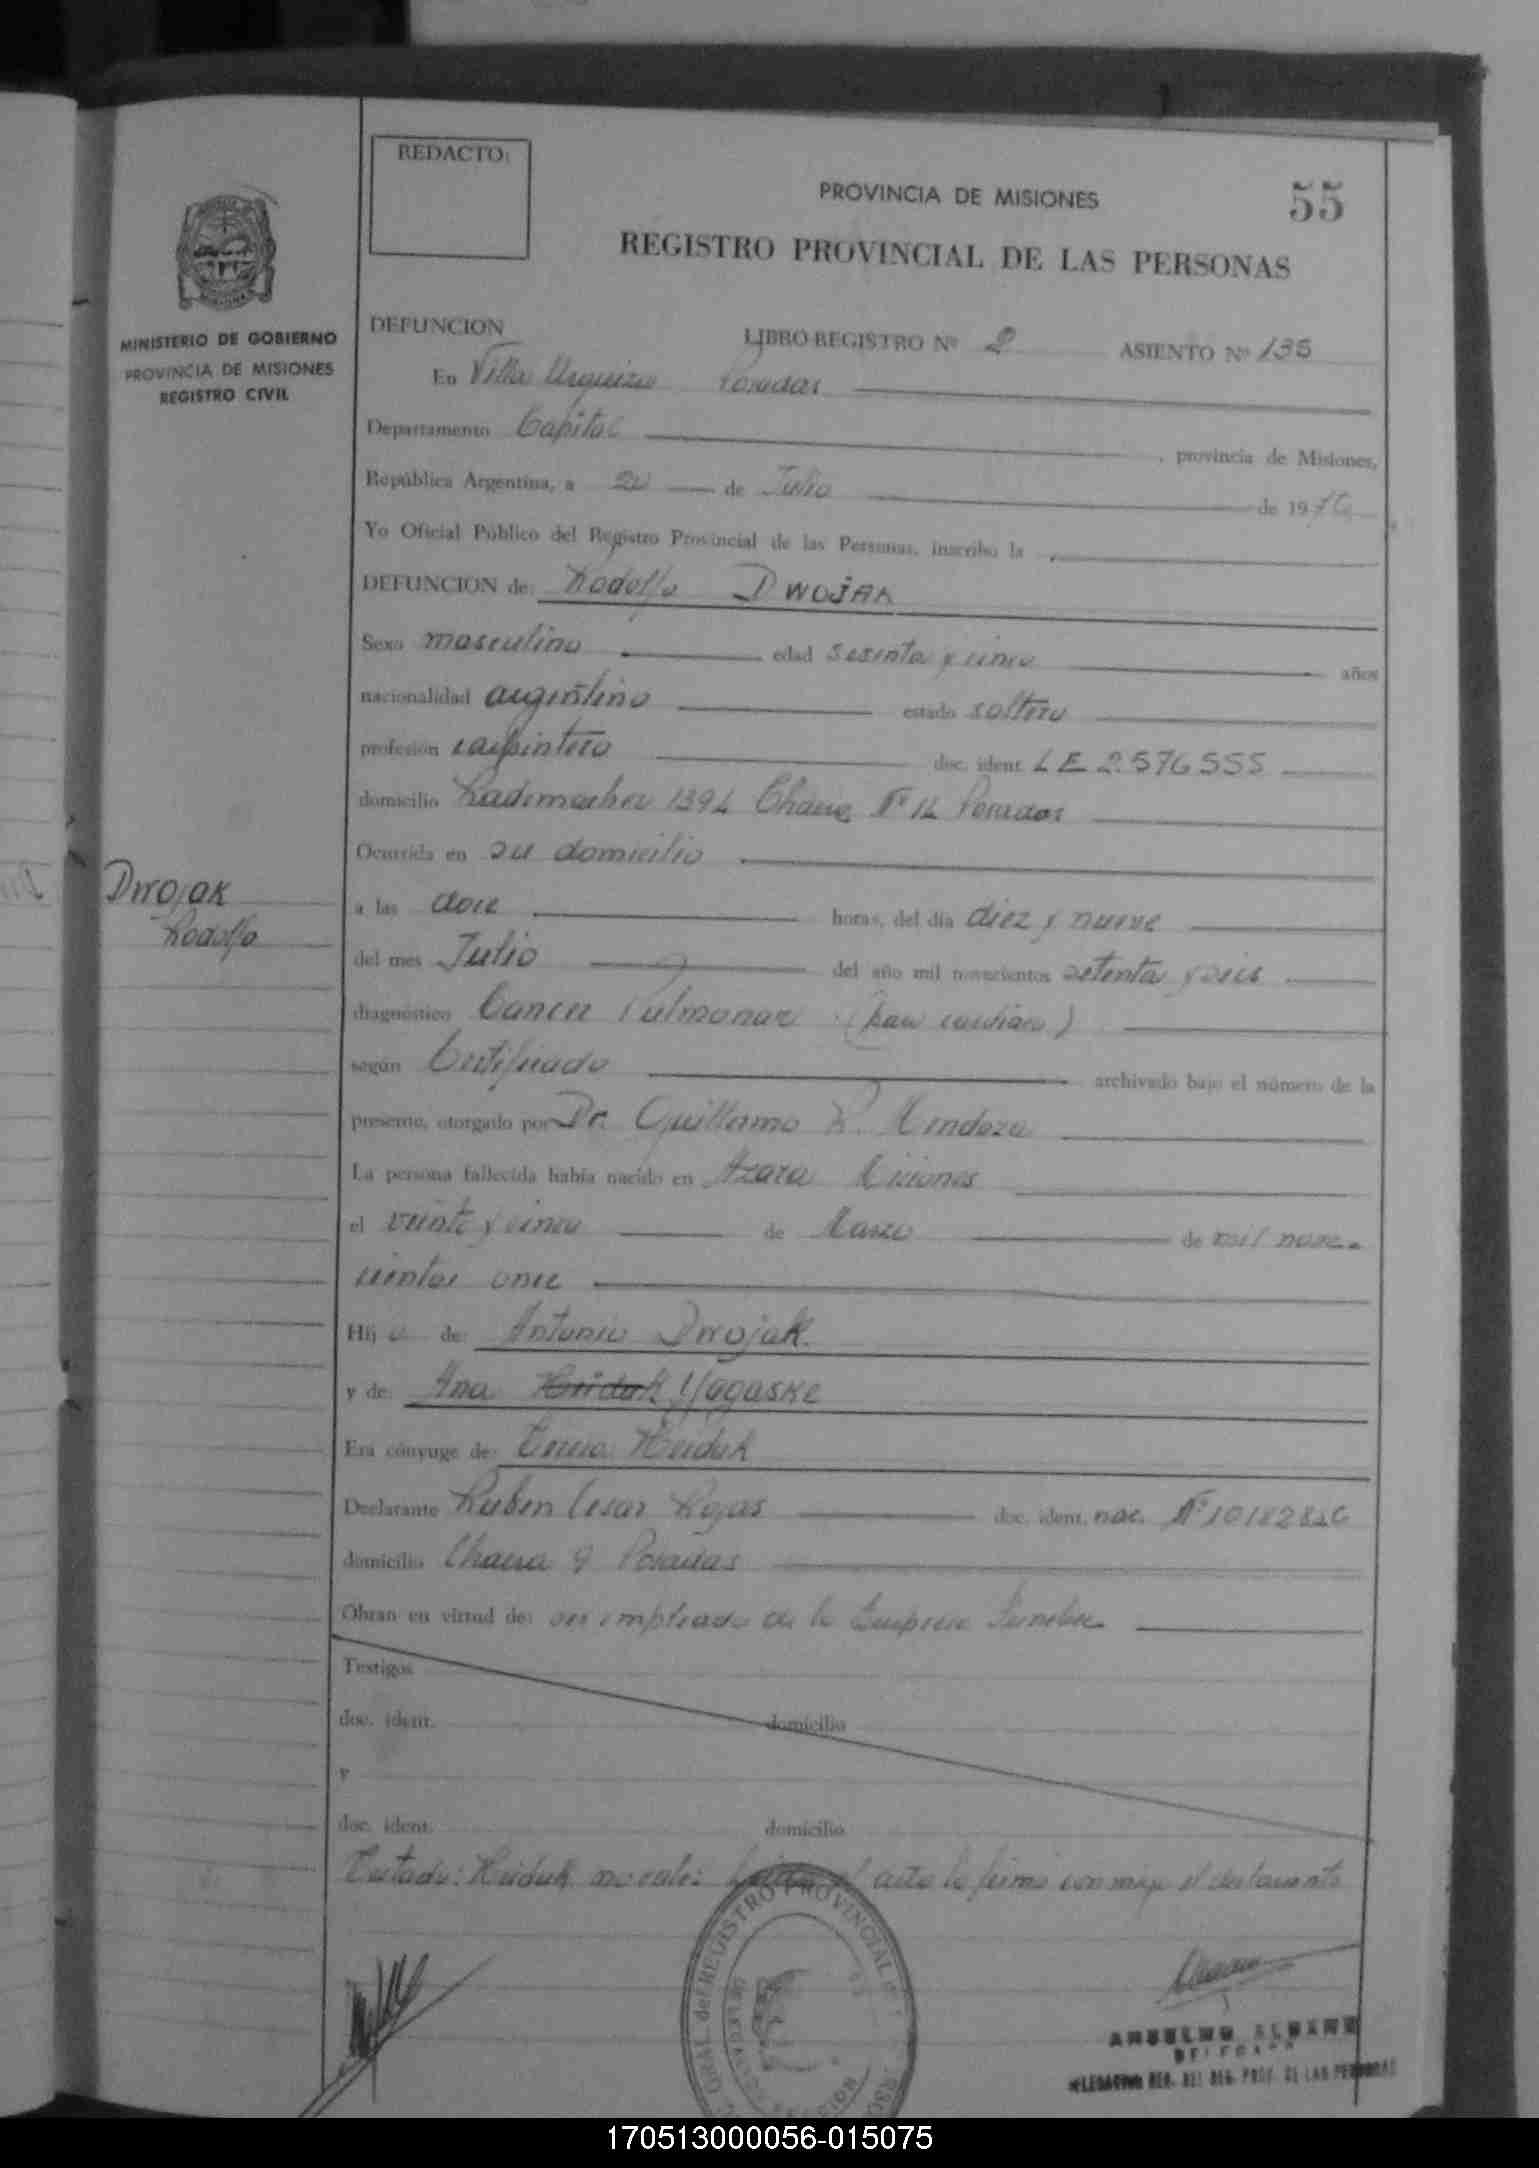 REDACTO:
PROVINCIA DE MISIONES
55
REGISTRO PROVINCIAL DE LAS PERSONAS
MINISTERIO DE GOBIERNO
PROVINCIA DE MISIONES
REGISTRO CIVIL
DEFUNCION LIBRO-REGISTRO Nº 2 ASIENTO Nº 135
En Villa Urquiza Posadas
Departamento Capital , provincia de Misiones,
República Argentina, a 20 de Julio de 1976
Yo Oficial Público del Registro Provincial de las Personas, inscribo la
DEFUNCION de: Rodolfo DWOJAK
Sexo masculino edad sesenta y cinco años
nacionalidad argentino estado soltero
profesión carpintero doc. ident. LE 2.576555
domicilio Rademacher 1394 Chacra Nº 12 Posadas
Ocurrida en su domicilio
Dwojak
Rodolfo
a las doce horas, del día diez y nueve
del mes Julio del año mil novecientos setenta y seis
diagnóstico Cancer Pulmonar (paro cardiaco)
según Certificado archivado bajo el número de la
presente, otorgado por Dr. Guillermo R. Mendoza
La persona fallecida había nacido en Azara Misiones
el veinte y cinco de Marzo de mil nove-
cientos once
Hijo de: Antonio Dwojak.
y de: Ana Heiduk Yagaske
Era cónyuge de: Heiduk
Declarante Ruben Cesar Rojas doc. ident. nac. Nº 10182826
domicilio Chacra 9 Posadas
Obran en virtud de: ser empleado de la Empresa Funebre
Testigos
doc. ident. domicilio
y
doc. ident. domicilio
Testado: Heiduk no vale: Leida el acta la firma conmigo el declarante
GRAL. del REGISTRO PROVINCIAL
ANSELMO
DELEGADO
REG. DEL REG. PROV. DE LAS PERSONAS
170513000056-015075